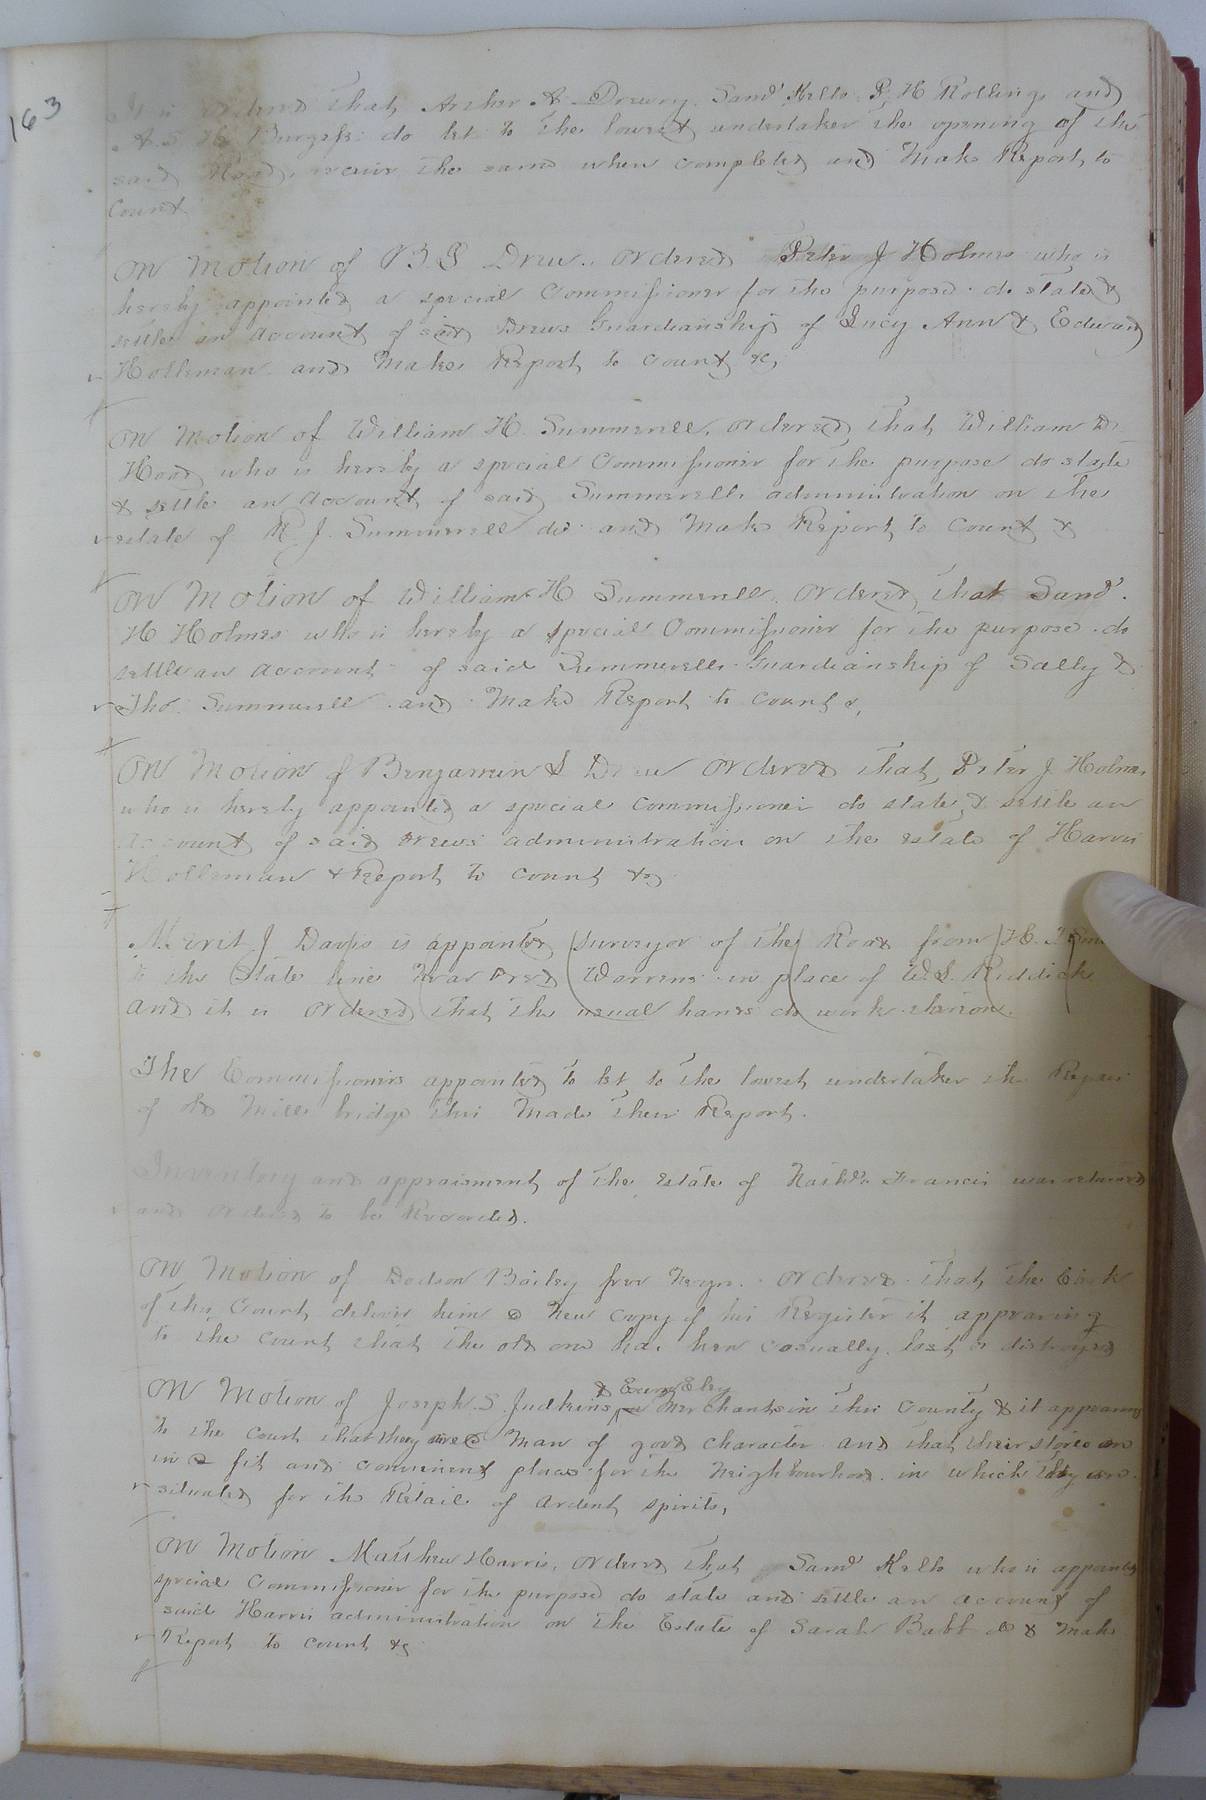 163
It is ordered that Archer A Drewry Saml Kello P. H Rollings and
A. S. H Burgess do let to the lowest undertaker the opening of the
said Road, receive the same when completed and Make Report to
Court
On Motion of B S Drew. Ordered Peter J Holmes who is
hereby appointed a special Commissioner for the purpose do state &
settle an account of said Drews Guardianship of Lucy Ann & Edward
Holleman and Make Report to Court &c,
On Motion of William H. Summerell, Ordered, that William D.
Hood who is hereby a special Commissioner for the purpose do state
& settle an account of said Summerells administration on the
estate of R. J. Summerell dec and Make Report to Court &
On Motion of William H Summerell. Ordered, that Saml.
H Holmes who is hereby a special Commissioner for the purpose do
settle an account of said Summerells Guardianship of Sally &
Tho. Summerell and Make Report to Court &,
On Motion of Benjamin S Drew Ordered that, Peter J Holmes
who is hereby appointed a special Commissioner do state & settle an
account of said Drews administration on the estate of Harris
Holleman & Report to Court &c
Merit J Davis is appointed surveyor of the Road from H.
to the State line near Warrens in place of W. S. Riddick
and it is ordered that the usual hands do work thereon.
The Commissioners appointed to let to the lowest undertaker the Repair
of old Mill bridge this Made their Report.
Inventory and appraisment of the Estate of Nathl. Francis was returned
and ordered to be Recorded.
On Motion of Dodson Bailey free Negro. Ordered that the Clerk
of this Court deliver him a New Copy of his Register it appearing
to the Court that the old one has been casually lost or distroyed
& Eley
On Motion of Joseph S. Judkins Merchants in this County & it appearing
to the Court that they are Man of good character and that their store are
in a fit and convenient places for the Neighbourhood in which they are
situated for the Retail of ardent spirits,
On Motion Matthew Harris, Ordered that Saml Kello who is appointed
special Commissioner for the purpose do state and settle an account of
said Harris administration on the Estate of Sarah Babb de & Make
Report to Court &c